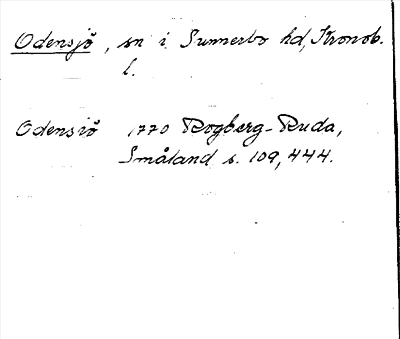 Odensjö, sn i Sunnerbo hd, Kronob.
l.
Odensiö 1770 Rogberg-Ruda,
Småland s. 109, 444.